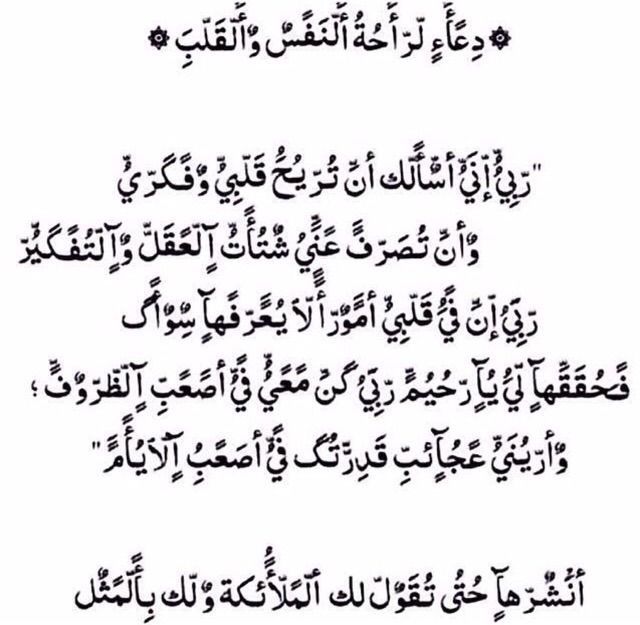 ۞ دعاء لراحة النفس والقلب ۞
"ربي إني أسألك أن تريح قلبي وفكري
وأن تصرف عني شتات العقل والتفكير
ربي إن في قلبي أمورا لا يعرفها سواك
فحققها لي يا رحيم ربي كن معي في أصعب الظروف ؛
وأريني عجائب قدرتك في أصعب الايام"
أنشرها حتى تقول لك الملائكة ولك بالمثل